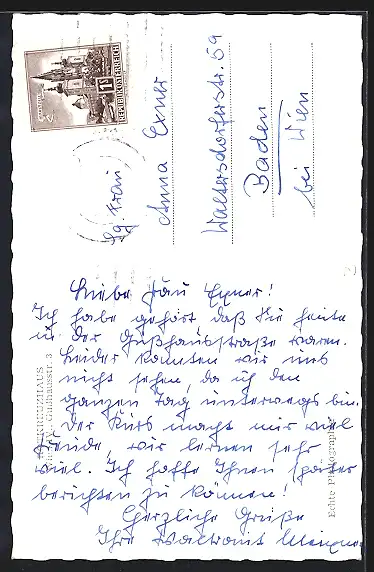 REPUBLIK ÖSTERREICH
1S
Sg. Frau
Anna Exner
Waltersdorferstr. 59
Baden
bei Wien
Liebe Frau Exner!
Ich habe gehört, daß Sie heute
in der Gußhausstraße waren.
Leider konnten wir uns
nicht sehen, da ich den
ganzen Tag unterwegs bin.
Der Kurs macht mir viel
Freude, wir lernen sehr
viel. Ich hoffe Ihnen später
berichten zu können!
Herzliche Grüße
Ihre Waltraut
Echte Photographie